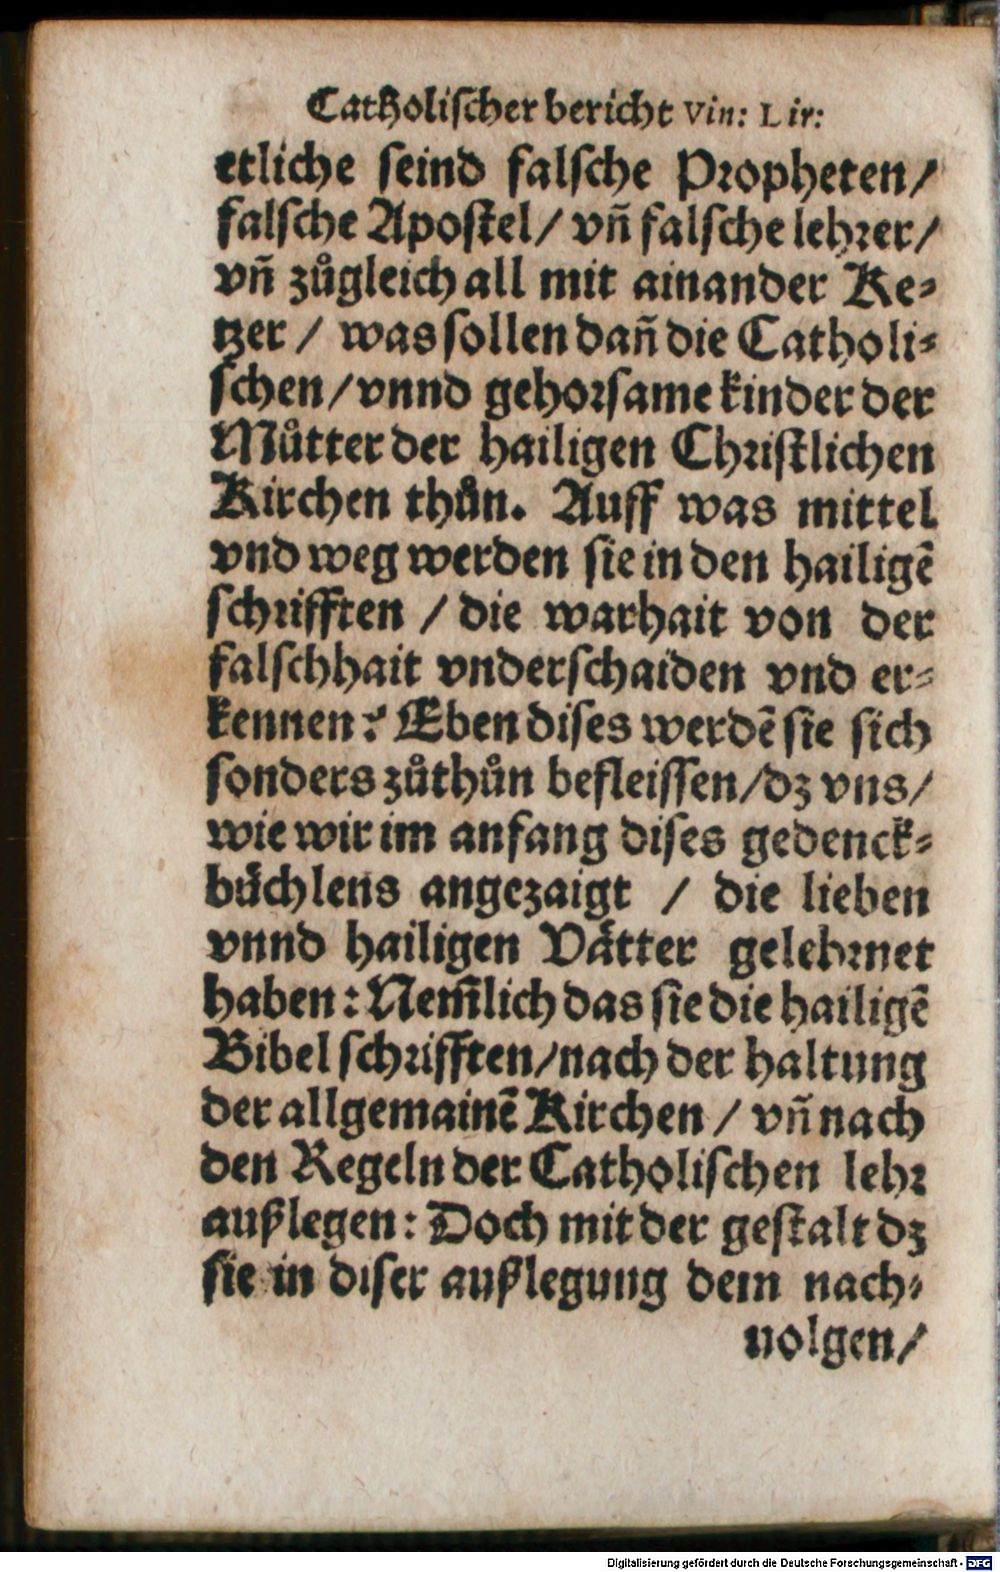 Catholischer bericht Vin: Lir:
etliche seind falsche Propheten/
falsche Apostel/ vñ falsche lehrer/
vñ zůgleich all mit ainander Ke-
tzer / was sollen dañ die Catholi-
schen/ vnnd gehorsame kinder der
Můtter der hailigen Christlichen
Kirchen thůn. Auff was mittel
vnd weg werden sie in den hailigẽ
schrifften / die warhait von der
falschhait vnderschaiden vnd er-
kennen? Eben dises werdẽ sie sich
sonders zůthůn befleissen/ dz vns/
wie wir im anfang dises gedenck-
bůchlens angezaigt / die lieben
vnnd hailigen Vätter gelehrnet
haben: Nem̃lich das sie die hailigẽ
Bibel schrifften/ nach der haltung
der allgemainẽ Kirchen / vñ nach
den Regeln der Catholischen lehr
außlegen: Doch mit der gestalt dz
sie in diser außlegung dem nach-
uolgen/
Digitalisierung gefördert durch die Deutsche Forschungsgemeinschaft - DFG